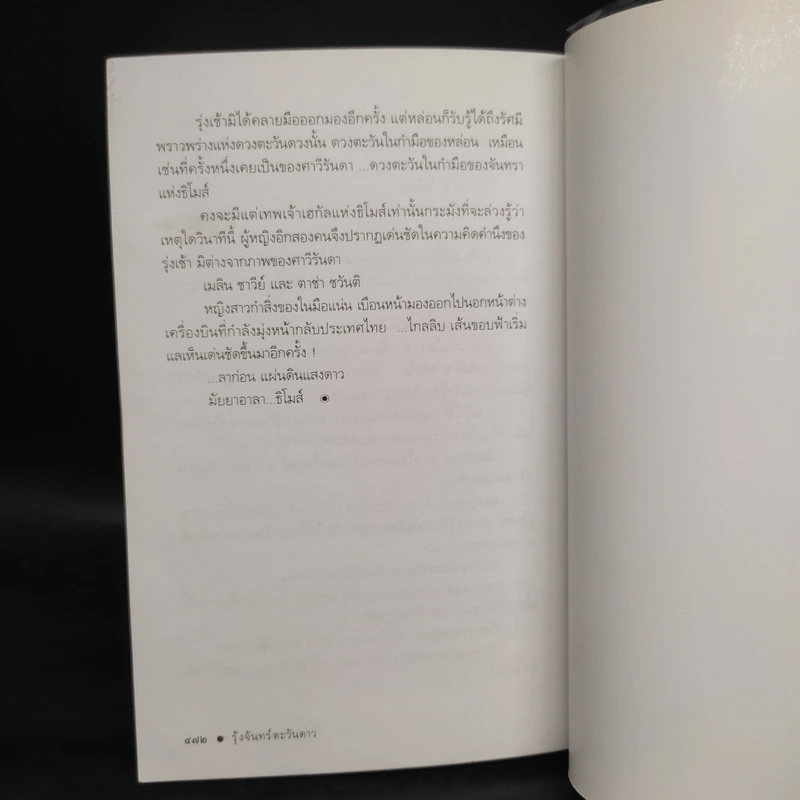 รุ่งเช้ามิได้คลายมือออกมองอีกครั้ง แต่หล่อนก็รับรู้ได้ถึงรัศมี
พราวพร่างแห่งดวงตะวันดวงนั้น ดวงตะวันในกำมือของหล่อน เหมือน
เช่นที่ครั้งหนึ่งเคยเป็นของศาวีรันดา ...ดวงตะวันในกำมือของจันทรา
แห่งธิโมส์
คงจะมีแต่เทพเจ้าเฮกัลแห่งธิโมส์เท่านั้นกระมังที่จะล่วงรู้ว่า
เหตุใดวินาทีนี้ ผู้หญิงอีกสองคนจึงปรากฏเด่นชัดในความคิดคำนึงของ
รุ่งเช้า มิต่างจากภาพของศาวีรันดา
เมลิน ซาวีย์ และ ตาซ่า ชวันติ
หญิงสาวกำสิ่งของในมือแน่น เบือนหน้ามองออกไปนอกหน้าต่าง
เครื่องบินที่กำลังมุ่งหน้ากลับประเทศไทย ...ไกลลิบ เส้นขอบฟ้าเริ่ม
แลเห็นเด่นชัดขึ้นมาอีกครั้ง !
...ลาก่อน แผ่นดินแสงดาว
มัยยาอาลา...ธิโมส์
๔๗๒ ● รุ้งจันทร์ตะวันดาว